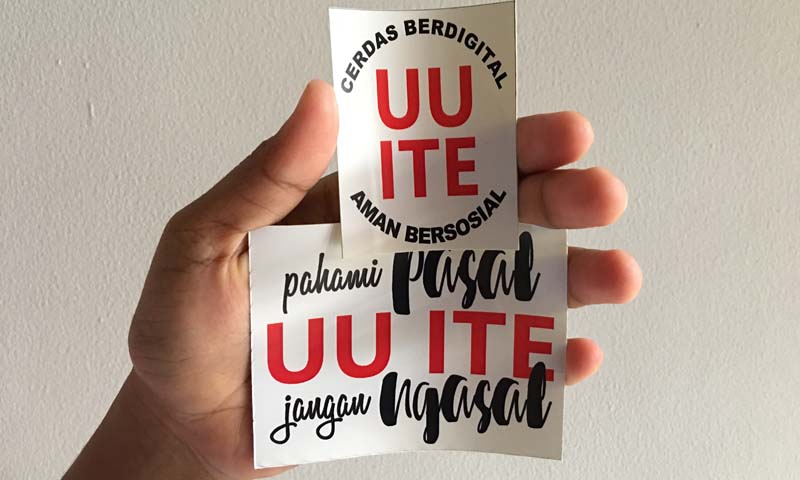 CERDAS BERDIGITAL
UU
ITE
AMAN BERSOSIAL
pahami pasal
UU ITE
jangan ngasal